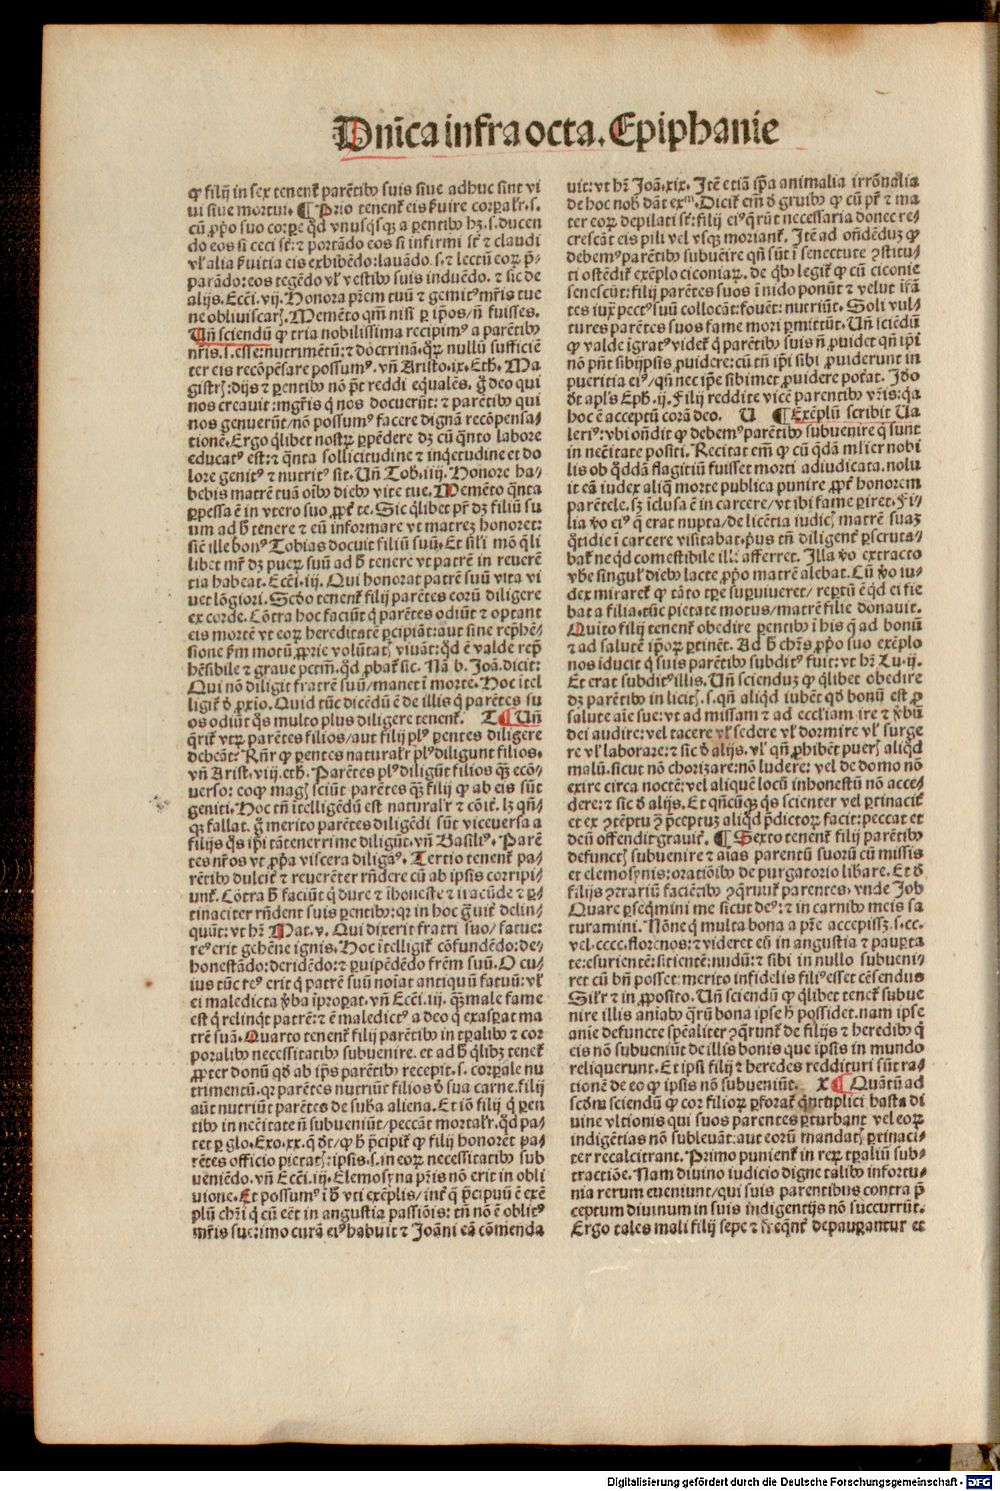 Dn̄ica infra octa. Epiphanie
ꝙ filij in sex tenent᷑ parētibꝰ suis siue adhuc sint vi
ui siue mortui. ¶ Prīo tenent᷑ eis ẜuire corꝑalr̄.s.
cū ꝓpō suo corꝑe qd̄ vnusqͥsqꝫ a ꝑentibꝰ hꝫ.s.ducen
do eos si ceci st̄: ⁊ portādo eos si infirmi st̄ ⁊ claudi
vl̓ alia ẜuitia eis exhibēdo: lauādo.s.⁊ lectū eoꝝ p̄-
parādo: eos tegēdo vl̓ vestibꝰ suis induēdo. ⁊ sic de
alijs. Ecc̄i.vij. Honora pr̄em tuū ⁊ gemitꝰ mr̄is tue
ne obliuiscaꝭ. Memēto qm̄ nisi ꝑ ip̄os/ n̄ fuisses.
Un̄ sciendū ꝙ tria nobilissima recipimꝰ a parētibꝰ
nr̄is.s.esse: nutrimētū: ⁊ doctrinā. qͥꝝ nullū sufficiē
ter eis recōpēsare possumꝰ. vn̄ Aristo.ix.Eth. Ma
gistrꝭ: dijs ⁊ ꝑentibꝰ nō pt̄ reddi eq̄ualēs. g̊ deo qui
nos creauit: mgr̄is qͥ nos docuerūt: ⁊ parētibꝰ qui
nos genuerūt/ nō possumꝰ facere dignā recōpensa-
tionē. Ergo qͥlibet nostꝝ ꝑpēdere dꝫ cū qͣnto labore
educatꝰ est: ⁊ qͣnta sollicitudine ⁊ inqͥetudine et do
lore genitꝰ ⁊ nutritꝰ sit. Un̄ Tob.iiij. Honore ha-
bebis matrē tuā oībꝰ diebꝰ vite tue. Memēto qͣnta
ꝑpessa ē in vtero suo ꝓpt̄ te. Sic qͥlibet pr̄ dꝫ filiū su
um ad ħ tenere ⁊ eū informare vt matrē honoret:
sic̄ ille bonꝰ Tobias docuit filiū suū. Et sil̓i mō qͥli
libet mr̄ dꝫ pueꝝ suū ad ħ tenere vt patrē in reuerē
tia habeat. Ecc̄i.iij. Qui honorat patrē suū vita vi
uet lōgiori. Scd̓o tenent᷑ filij parētes eorū diligere
ex corde. Cōtra hoc faciūt qͥ parētes odiūt ⁊ optant
eis mortē vt eoꝝ hereditatē ꝑcipiāt: aut sine rep̄hē-
sione ẜm motū ꝓprie volūtatꝭ viuāt: qd̄ ē valde rep̄
hēsibile ⁊ graue pctm̄. qd̄ ꝓbat᷑ sic. Nā b. Joā. dicit:
Qui nō diligit fratrē suū/ manet ī morte. Hoc ītel
ligit᷑ d̓ ꝓxīo. Quid tūc dicēdū ē de illis qͥ parētes su
os odiūt qͦs multo plus diligere tenent᷑. T ¶ Un̄
qͣrit᷑ vtꝝ parētes filios/ aut filij plꝰ ꝑentes diligere
debeāt? Rn̄r ꝙ ꝑentes natural̓r plꝰ diligunt filios.
vn̄ Arist.viij.eth. Parētes plꝰ diligūt filios qͣꝫ ecō-
uerso: eo ꝙ magꝭ sciūt parētes qͣꝫ filij ꝙ ab eis sūt
geniti. Hoc tn̄ ītelligēdū est natural̓r ⁊ cōit̓. lꝫ qn̄-
qꝫ fallat. g̊ merito parētes diligēdi sūt viceuersa a
filijs qͦs ip̄i tā tenerrime diligūt. vn̄ Basiliꝰ. Parē
tes nr̄os vt ꝓpͥa viscera diligāꝰ. Tertio tenent᷑ pa-
rētibꝰ dulcit̓ ⁊ reuerēter rn̄dere cū ab ipsis corripi-
unt᷑. Cōtra ħ faciūt qͥ dure ⁊ īhoneste ⁊ iracūde ⁊ ꝑ-
tinaciter rn̄dent suis ꝑentibꝰ: qꝛ in hoc gͣuit̓ delin-
quūt: vt hr̄ Mat.v. Qui dixerit fratri suo/ fatue:
reꝰ erit gehēne ignis. Hoc ītelligit᷑ cōfundēdo: de-
honestādo: deridēdo: ⁊ ꝑuipēdēdo frēm suū. O cu-
ius tūc reꝰ erit qͥ patrē suū noīat antiquū fatuū: vl̓
ei maledicta ꝟba īproꝑat. vn̄ Ecc̄i.iij. qͣꝫ male fame
est qͥ relinqͥt patrē: ⁊ ē maledictꝰ a deo qͥ exasꝑat ma
trē suā. Quarto tenent᷑ filij parētibꝰ in tꝑalibꝰ ⁊ cor
poralibꝰ necessitatibꝰ subuenire. et ad ħ qͥlibꝫ tenet᷑
ꝓpter donū qd̓ ab ip̄s parētibꝰ recepit.s.corꝑale nu
trimentū. qꝛ parētes nutriūt filios d̓ sua carne. filij
aūt nutriūt parētes de suba aliena. Et iō filij qͥ ꝑen
tibꝰ in nec̄itate n̄ subueniūt/ peccāt mortal̓r. qd̓ pa-
tet ꝑ glo.Exo.xx. q̄ dt̄/ ꝙ ħ p̄cipit᷑ ꝙ filij honorēt pa-
rētes officio pietatꝭ: ipsis.s.in eoꝝ necessitatibꝰ sub
ueniēdo. vn̄ Ecc̄i.iij. Elemosyna pr̄is nō erit in obli
uione. Et possumꝰ ī ħ vti exēplis/ int̓ q̄ p̄cipuū ē exē
plū chr̄i qͥ cū eēt in angustia passiōis: tn̄ nō ē oblitꝰ
mr̄is sue: imo curā eiꝰ habuit ⁊ Joāni eā cōmenda
uit: vt hr̄ Joā.xix. Jtē etiā ip̄a animalia irrōnalia
de hoc nob̄ dāt exᵐ. Dicit᷑ em̄ d̓ gruibꝰ ꝙ cū pr̄ ⁊ ma
ter eoꝝ depilati st̄: filij eiꝰ qͣrūt necessaria donec re-
crescāt eis pili vel vsqꝫ moriant᷑. Jtē ad on̄dēdū ꝙ
debemꝰ parētibꝰ subuēire qn̄ sūt ī senectute ꝯstitu-
ti ostēdit᷑ exēplo ciconiaꝝ. de qͥbꝰ legit᷑ ꝙ cū ciconie
senescūt: filij parētes suos ī nido ponūt ⁊ velut ifā
tes iuxͣ pectꝰ suū collocāt: fouēt: nutriūt. Soli vul-
tures parētes suos fame mori ꝑmittūt. Un̄ sciēdū
ꝙ valde īgratꝰ videt᷑ qͥ parētibꝰ suis n̄ ꝓuidet qn̄ ip̄i
nō pn̄t sibijpsis ꝓuidere: cū tn̄ ip̄i sibi ꝓuiderunt in
pueritia eiꝰ/ qn̄ nec ip̄e sibimet ꝓuidere poťat. Jdo
dt̄ apl̓s Eph.ij. Filij reddite vicē parentibꝰ vr̄is: qꝛ
hoc ē acceptū corā deo. U ¶ Exēplū scribit Ua
leriꝰ: vbi on̄dit ꝙ debemꝰ parētibꝰ subuenire qͥ sunt
in nec̄itate positi. Recitat em̄ ꝙ cū qͣdā ml̓ier nobi
lis ob qd̓dā flagitiū fuisset morti adiudicata. nolu
it eā iudex aliqͣ morte publica punire ꝓpt̓ honorem
parētele. sꝫ īclusa ē in carcere/ vt ibi fame ꝑiret. Fi-
lia ꝟo eiꝰ q̄ erat nupta/ de licētia iudicꝭ matrē suaꝫ
qͦtidie ī carcere visitabat. pͥus tn̄ diligent̓ ꝑscruta-
bat᷑ ne qd̓ comestibile illi afferret. Illa ꝟo extracto
vb̓e singul̓ diebꝰ lacte ꝓpͥo matrē alebat. Cū ꝟo iu-
dex miraret᷑ ꝙ tāto tꝑe suꝑuiueret/ repertū ē qd̓ ei fie
bat a filia. tūc pietate motus/ matrē filie donauit.
Quīto filij tenent᷑ obedire ꝑentibꝰ ī his q̄ ad bonū
⁊ ad salutē ip̄oꝝ ꝑtinēt. Ad ħ chr̄s ꝓpͥo suo exēplo
nos īducit qͥ suis parētibꝰ subditꝰ fuit: vt hr̄ Lu.ij.
Et erat subditꝰ illis. Un̄ sciendū ꝙ qͥlibet obedire
dꝫ parētibꝰ in licitꝭ.s.qn̄ aliqd̓ iubēt qd̓ bonū est ꝓ
salute aīe sue: vt ad missam ⁊ ad eccl̓iam ire ⁊ ꝟbū
dei audire: vel tacere vl̓ sedere vl̓ dormire vl̓ surge
re vl̓ laborare: ⁊ sic d̓ alijs. vl̓ qn̄ ꝓhibēt puerꝭ aliqd̓
malū. sicut nō chorizare: nō ludere: vel de domo nō
exire circa noctē: vel aliquē locū inhonestū nō acce-
dere: ⁊ sic d̓ alijs. Et qn̄cūqꝫ qͥs scienter vel ꝑtinacit̓
et ex ꝯtēptu ꝫ p̄ceptuꝫ aliqd̓ p̄dictoꝝ facit: peccat et
deū offendit grauit̓. ¶ Sexto tenent᷑ filij parētibꝰ
defunctꝭ subuenire ⁊ aīas parentū suorū cū missis
et elemosynis: oratiōibꝰ de purgatorio lib̓are. Et d̓
filijs ꝯtrariū faciētibꝰ ꝯqͣrunt᷑ parentes. vnde Job
Quare ꝑseqͥmini me sicut deꝰ: ⁊ in carnibꝰ meis sa
turamini. Nōne qͥ multa bona a pr̄e accepissꝫ.s.cc.
vel.cccc.florenos: ⁊ videret eū in angustia ⁊ pauꝑta
te: esurientē: sitientē: nudū: ⁊ sibi in nullo subueni-
ret cū bn̄ posset: merito infidelis filiꝰ esset cēsendus
Sil̓r ⁊ in ꝓposito. Un̄ sciendū ꝙ qͥlibet tenet᷑ subue
nire illis aniabꝰ qͣrū bona ipse ħ possidet. nam ipse
anie defuncte spēaliter ꝯqͣrunt᷑ de filijs ⁊ heredibꝰ qͥ
eis nō subueniūt de illis bonis que ipsis in mundo
reliquerunt. Et ipsi filij ⁊ heredes reddituri sūt ra-
tionē de eo ꝙ ipsis nō subueniūt. X ¶ Quātū ad
scd̓m sciendū ꝙ cor filioꝝ ꝑforat᷑ qͥntuplici hasta di
uine vltionis qui suos parentes ꝑturbant vel eoꝝ
indigētias nō subleuāt: aut eorū mandatꝭ ꝑtinaci-
ter recalcitrant. Primo punient᷑ in reꝝ tꝑaliū sub-
tractiōe. Nam diuino iudicio digne talibꝰ infortu-
nia rerum eueniunt/ qui suis parentibus contra p̄
ceptum diuinum in suis indigentijs nō succurrūt.
Ergo tales mali filij sepe ⁊ freqͥnt̓ depauꝑantur et
Digitalisierung gefördert durch die Deutsche Forschungsgemeinschaft - DFG